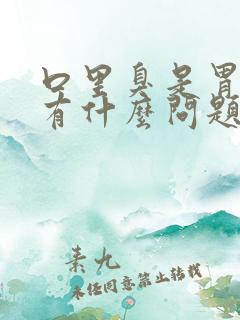 口里臭是胃
有什麼問題
素九
未经同意禁止转载